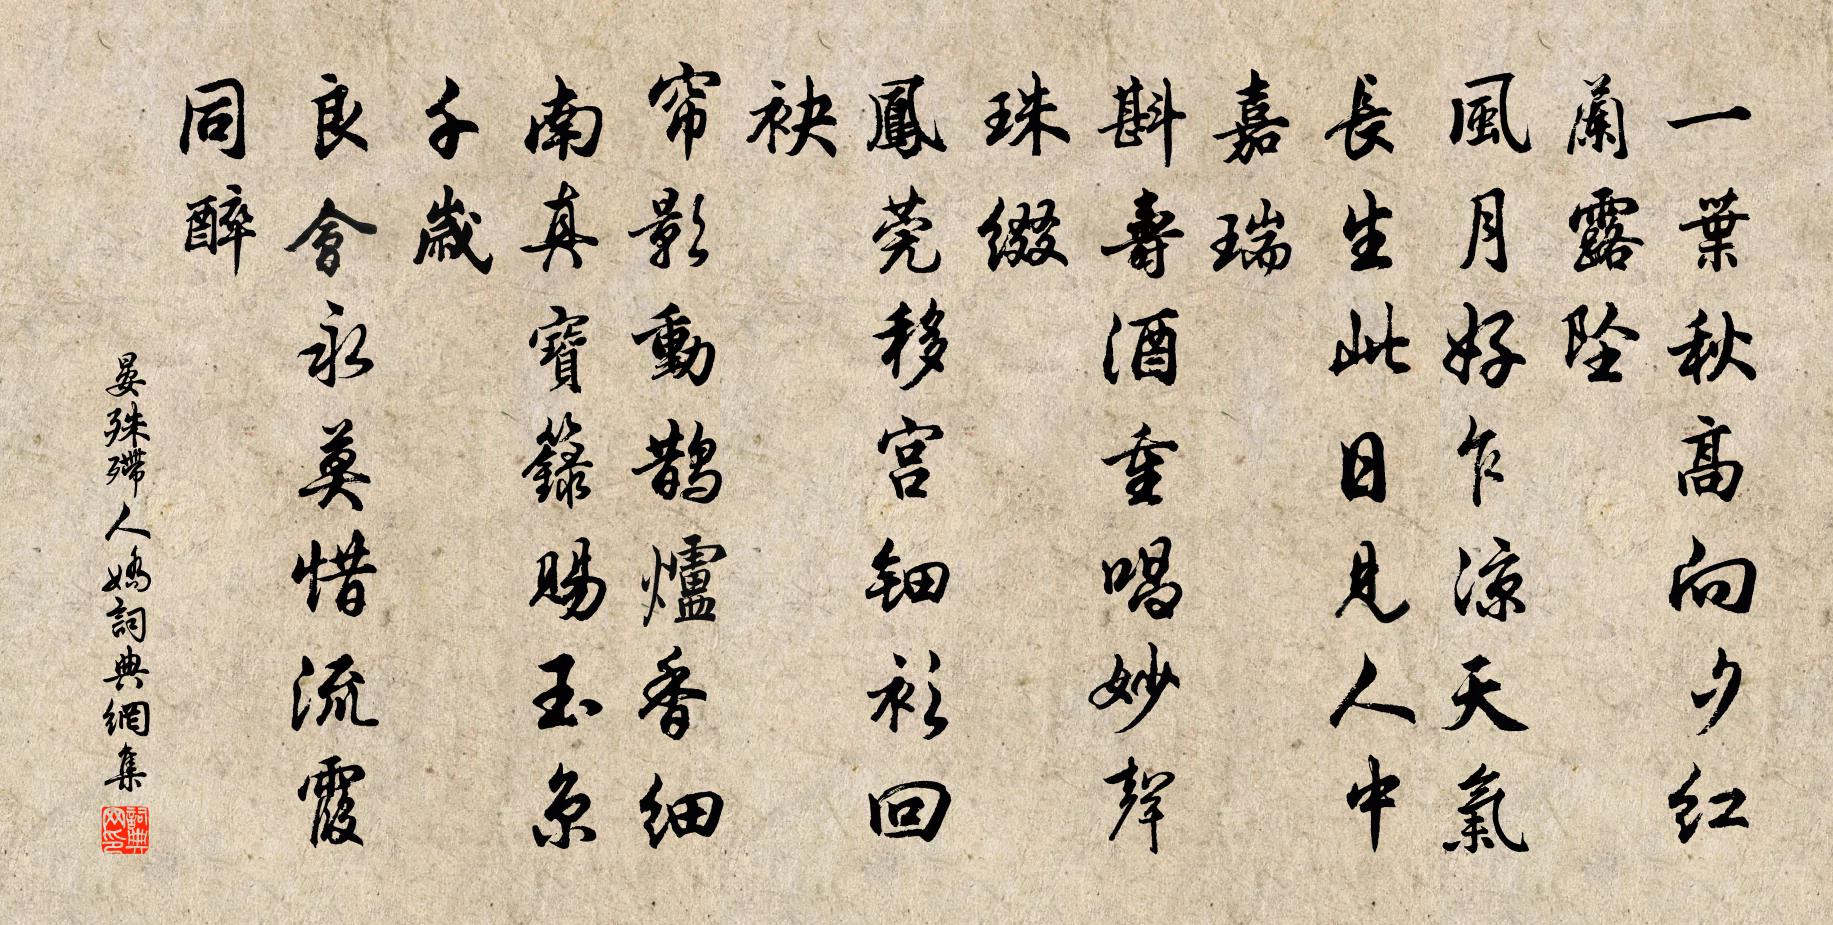 一葉秋高向夕紅
蘭露墜
風月好乍涼天氣
長生此日見人中
嘉瑞
斟壽酒重唱妙聲
珠綴
鳳莞移宮鈿衫回
袂
帘影動鵲爐香細
南真寶籙賜玉京
千歲
良會永莫惜流霞
同醉
晏殊殢人嬌詞典網集
詞典網印